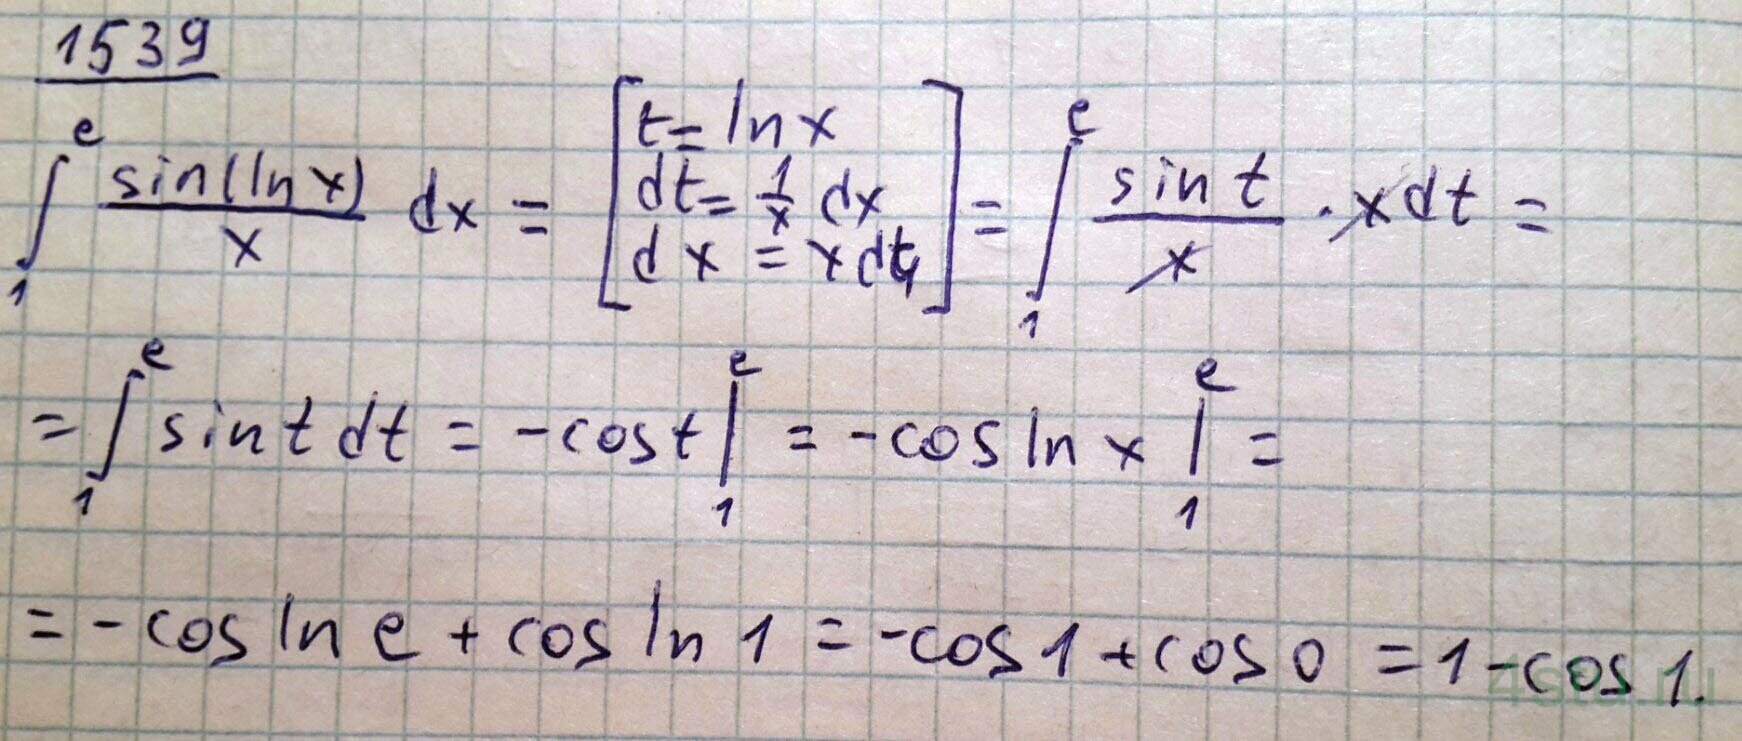 1539
∫₁ᵉ sin(ln x)/x dx = [t = ln x; dt = 1/x dx; dx = x dt] = ∫₁ᵉ sin t/x · x dt =
= ∫₁ᵉ sin t dt = -cos t |₁ᵉ = -cos ln x |₁ᵉ =
= -cos ln e + cos ln 1 = -cos 1 + cos 0 = 1 - cos 1.
4stu.ru